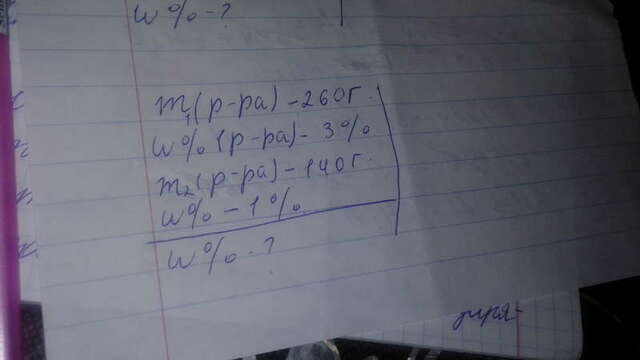 w% - ?
m₁(р-ра) - 260г.
w% (р-ра) - 3%
m₂(р-ра) - 140г.
w% - 1%
w% - ?